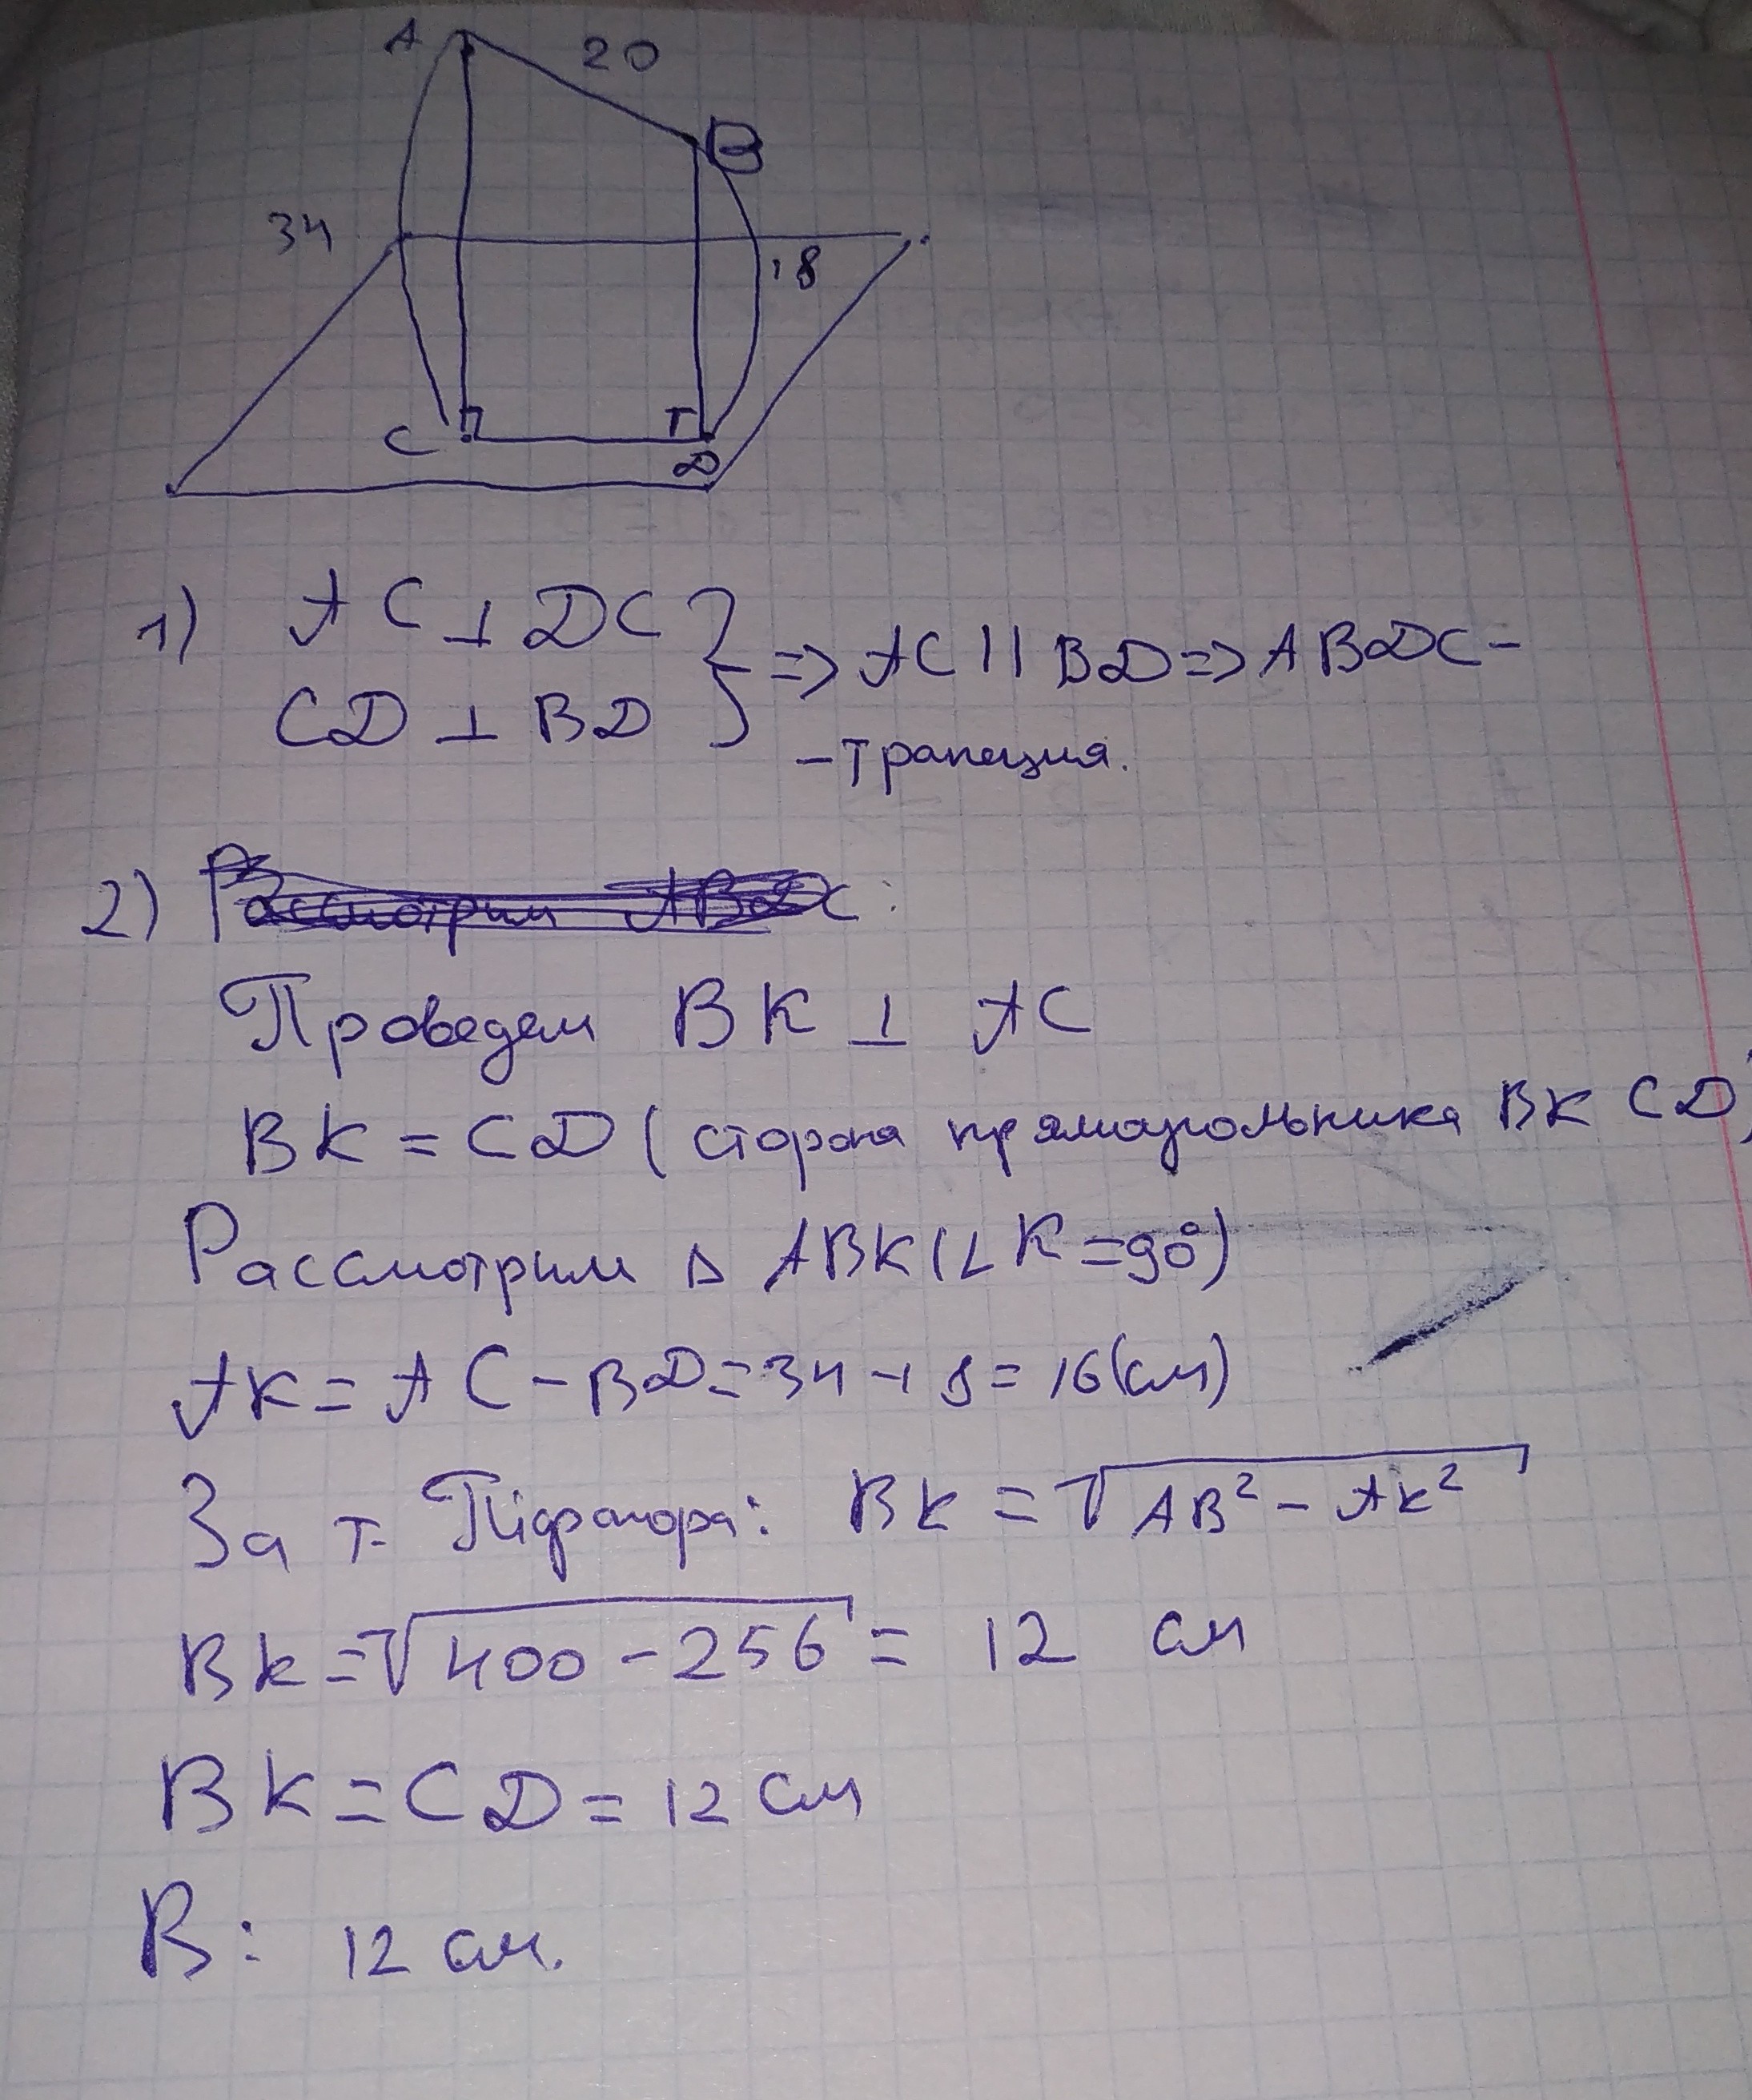 A 20
B
34
18
C
D
1) AC ⊥ DC
CD ⊥ BD } => AC || BD => ABDC -
- трапеция.
2) Рассмотрим ABDC:
Проведем BK ⊥ AC
BK = CD (сторона прямоугольника BK CD)
Рассмотрим △ ABK (∠K = 90°)
AK = AC - BD = 34 - 18 = 16 (см)
За т. Піфагора: BK = √AB² - AK²
BK = √400 - 256 = 12 см
BK = CD = 12 см
В: 12 см.